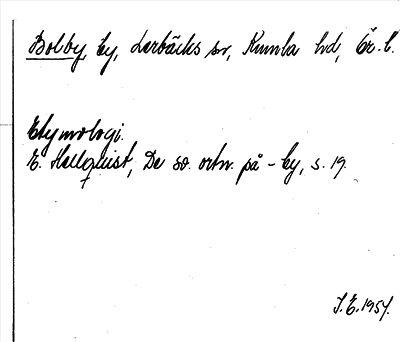 Bolby, by, Lerbäcks sn, Kumla hd, Ör. l.
Etymologi.
E. Hellquist, De sv. ortn. på -by, s. 19.
I.E. 1957.